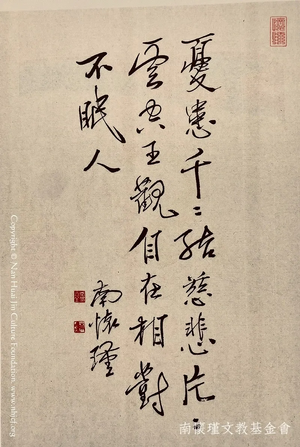 憂患千〻結慈悲片〻
雲空王觀自在相對
不眠人
南懷瑾
Copyright © Nan Huai Jin Culture Foundation. www.nhjcf.org
南懷瑾文教基金會